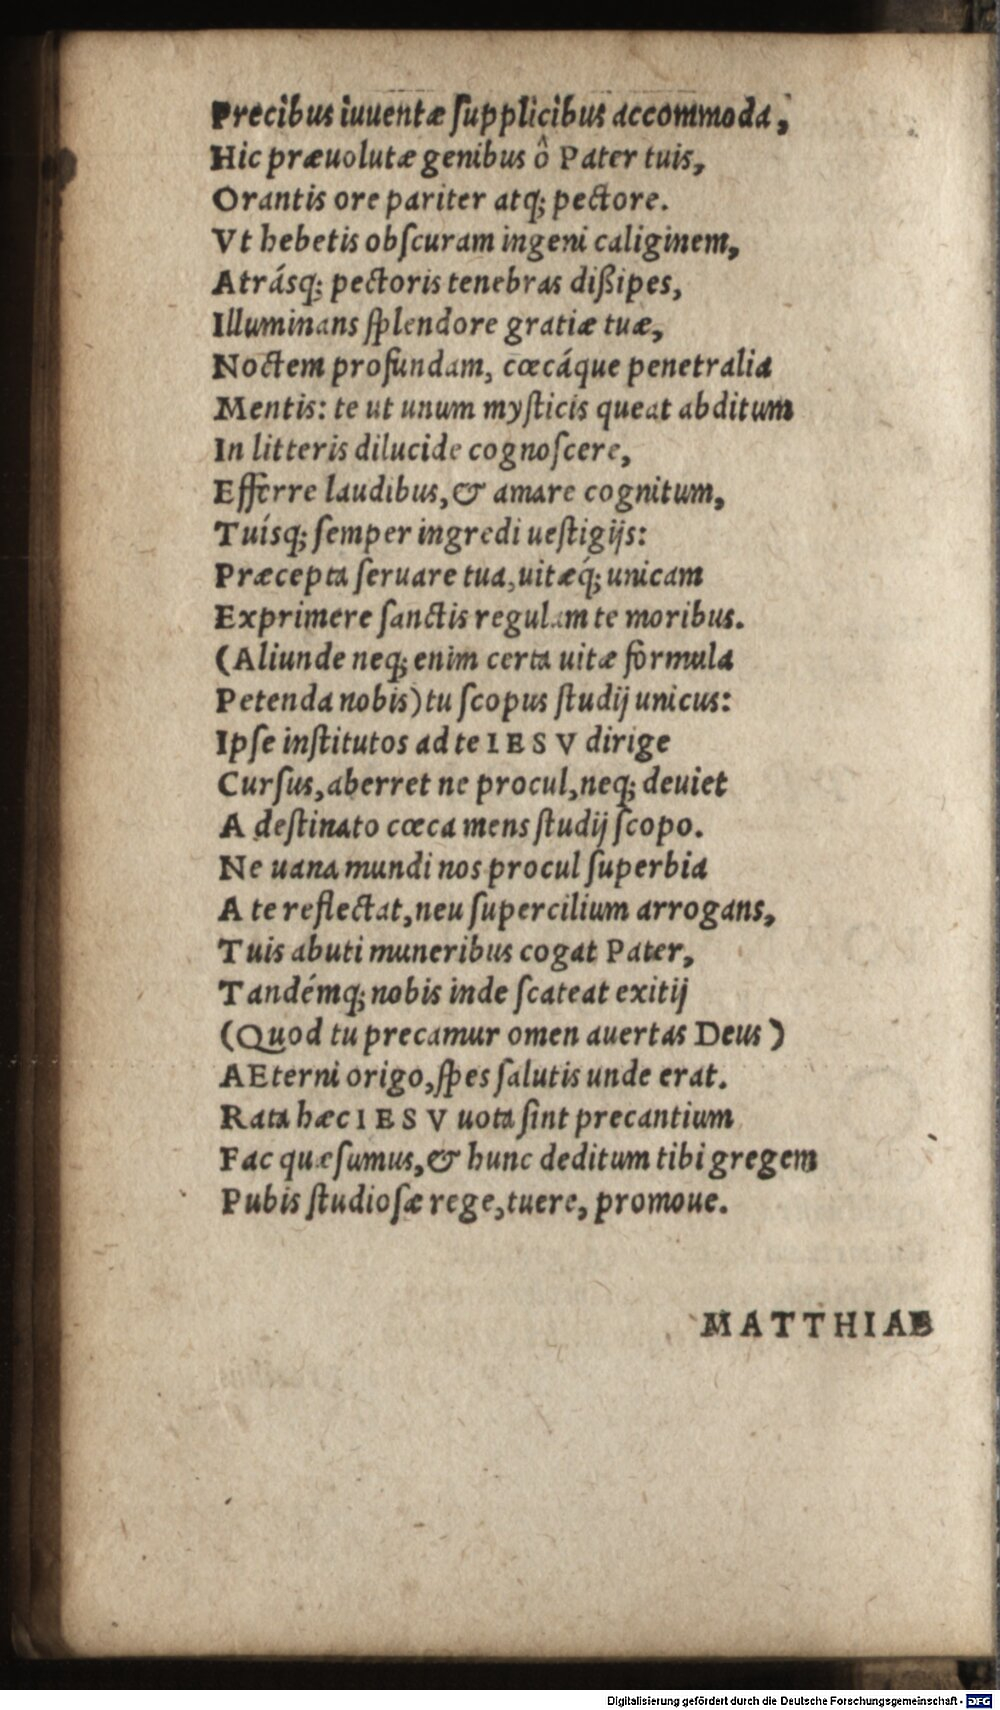 Precibus iuuentæ ſupplicibus accommoda,
Hic præuolutæ genibus ô Pater tuis,
Orantis ore pariter atq; pectore.
Vt hebetis obſcuram ingeni caliginem,
Atrásq; pectoris tenebras dißipes,
Illuminans ſplendore gratiæ tuæ,
Noctem profundam, cœcáque penetralia
Mentis: te ut unum myſticis queat abditum
In litteris dilucide cognoſcere,
Efferre laudibus, & amare cognitum,
Tuísq; ſemper ingredi ueſtigijs:
Præcepta ſeruare tua, uitæq́; unicam
Exprimere ſanctis regulam te moribus.
(Aliunde neq; enim certa uitæ formula
Petenda nobis) tu ſcopus ſtudij unicus:
Ipſe inſtitutos ad te IESV dirige
Curſus, aberret ne procul, neq; deuiet
A deſtinato cœca mens ſtudij ſcopo.
Ne uana mundi nos procul ſuperbia
A te reflectat, neu ſupercilium arrogans,
Tuis abuti muneribus cogat Pater,
Tandémq; nobis inde ſcateat exitij
(Quod tu precamur omen auertas Deus)
AEterni origo, ſpes ſalutis unde erat.
Rata hæc IESV uota ſint precantium
Fac quæſumus, & hunc deditum tibi gregem
Pubis ſtudioſæ rege, tuere, promoue.
MATTHIAE
Digitalisierung gefördert durch die Deutsche Forschungsgemeinschaft - DFG